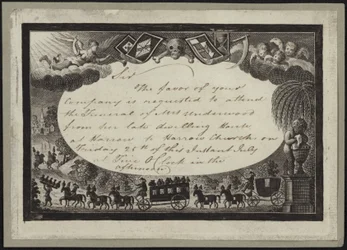 Sir
The favor of your
Company is requested to attend
the Funeral of Mrs Underwood
from her late dwelling House
at Harrow to Harrow Church on
Friday 25th of this Instant July
at Five O Clock in the
afternoon